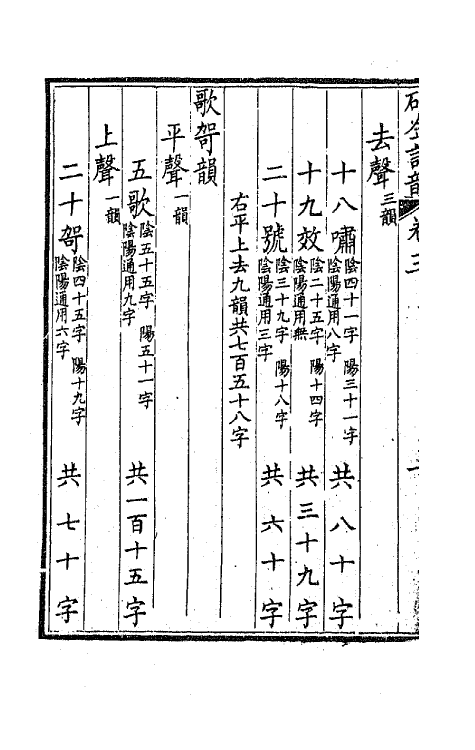 去聲三韻
十八嘯陰四十一字 陽三十一字陰陽通用八字 共八十字
十九效陰二十五字 陽十四字陰陽通用無 共三十九字
二十號陰三十九字 陽十八字陰陽通用三字 共六十字
右平上去九韻共七百五十八字
歌哿韻
平聲一韻
五歌陰五十五字 陽五十一字陰陽通用九字 共一百十五字
上聲一韻
二十哿陰四十五字 陽十九字陰陽通用六字 共七十字